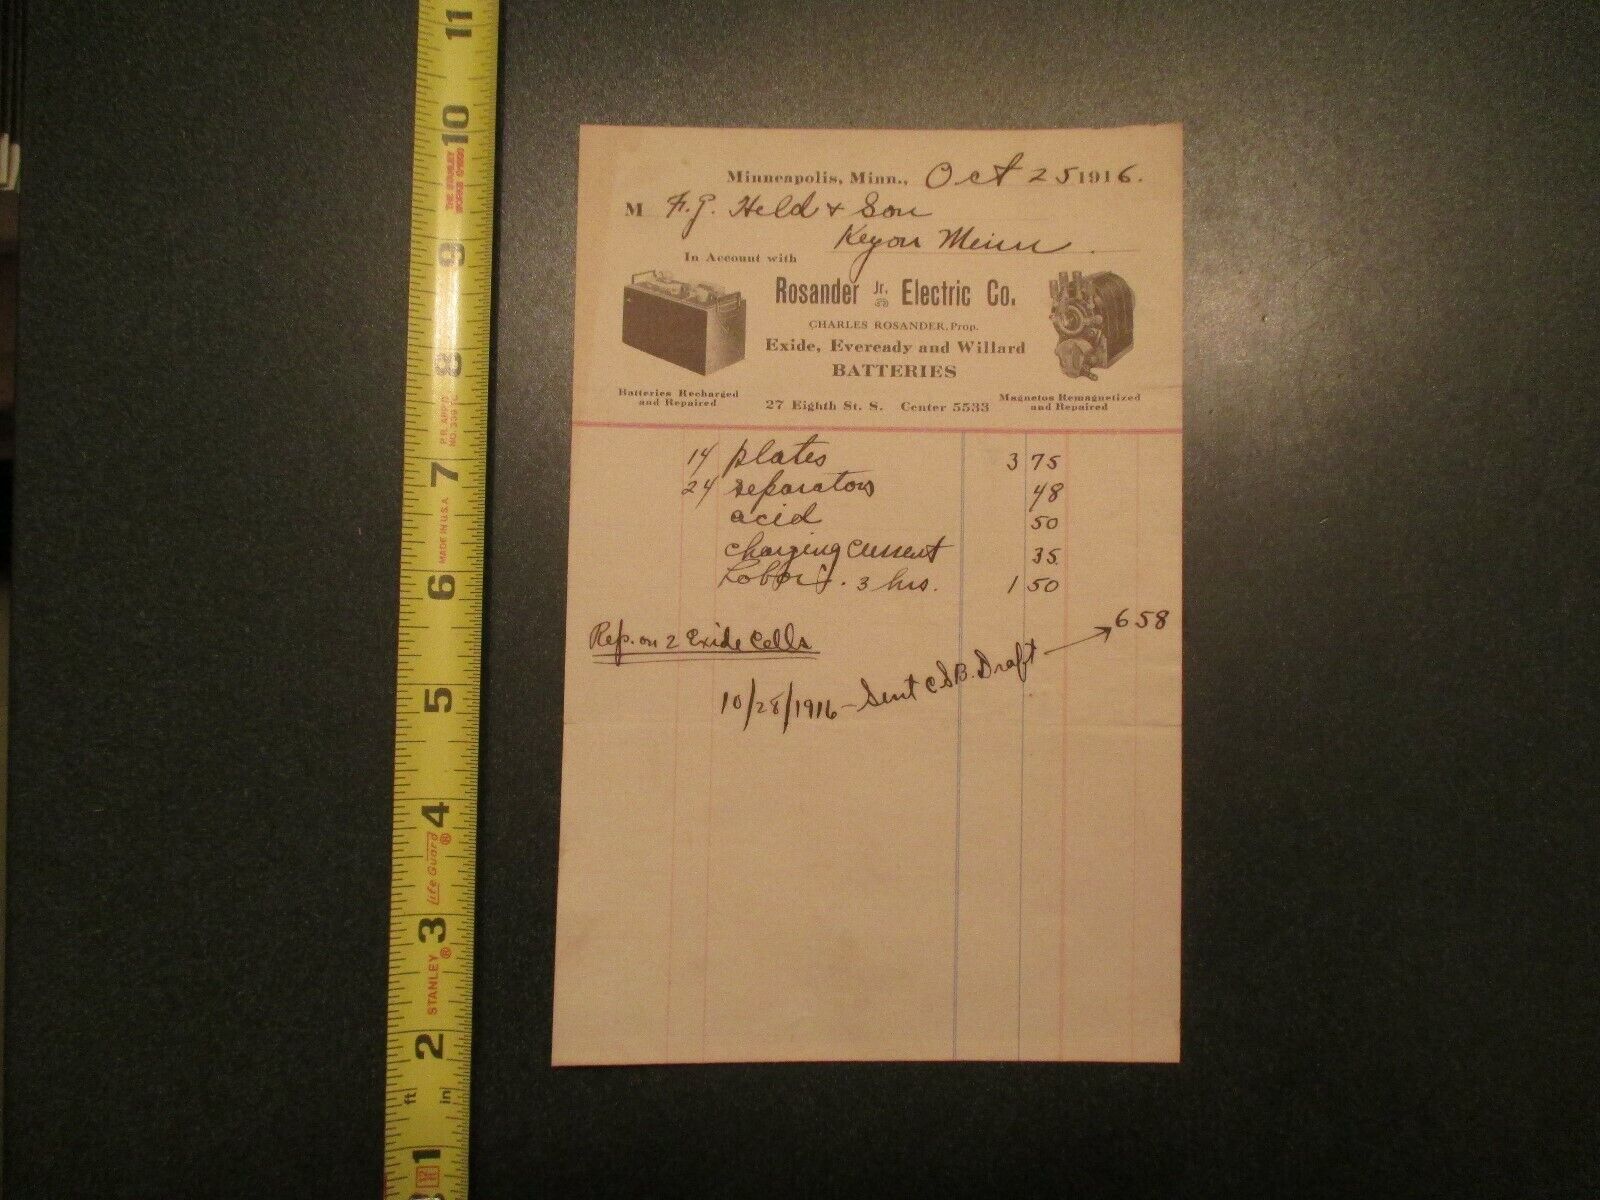 Minneapolis, Minn., Oct 25 1916.
M F. J. Held & Son
Keyon Minn.
In Account with
Rosander Jr. Electric Co.
CHARLES ROSANDER, Prop.
Exide, Eveready and Willard
BATTERIES
Batteries Recharged
and Repaired
27 Eighth St. S. Center 5533
Magnetos Remagnetized
and Repaired
14 plates 3 75
24 separators 48
acid 50
charging current 35
Labor. 3 hrs. 1 50
658
Rep. on 2 Exide Cells
10/28/1916 - Sent CSB. Draft
11
10
9
8
7
6
5
4
3
2
1
THE STANLEY
WORKS
MADE IN U.S.A.
Life Guard®
STANLEY®
ft
in